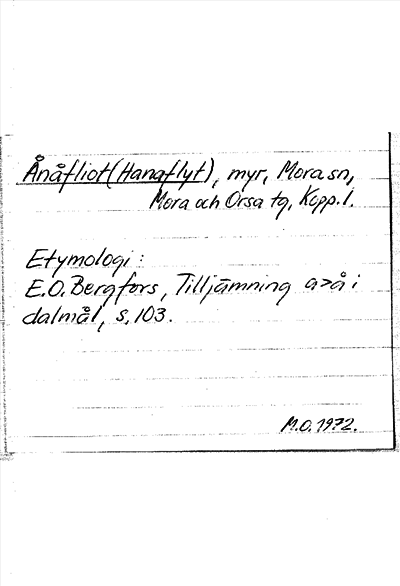 Ånåfliot (Hanaflyt), myr, Mora sn,
Mora och Orsa tg, Kopp. l.
Etymologi:
E.O. Bergfors, Tilljämning a>å i
dalmål, s. 103.
M.O. 1972.